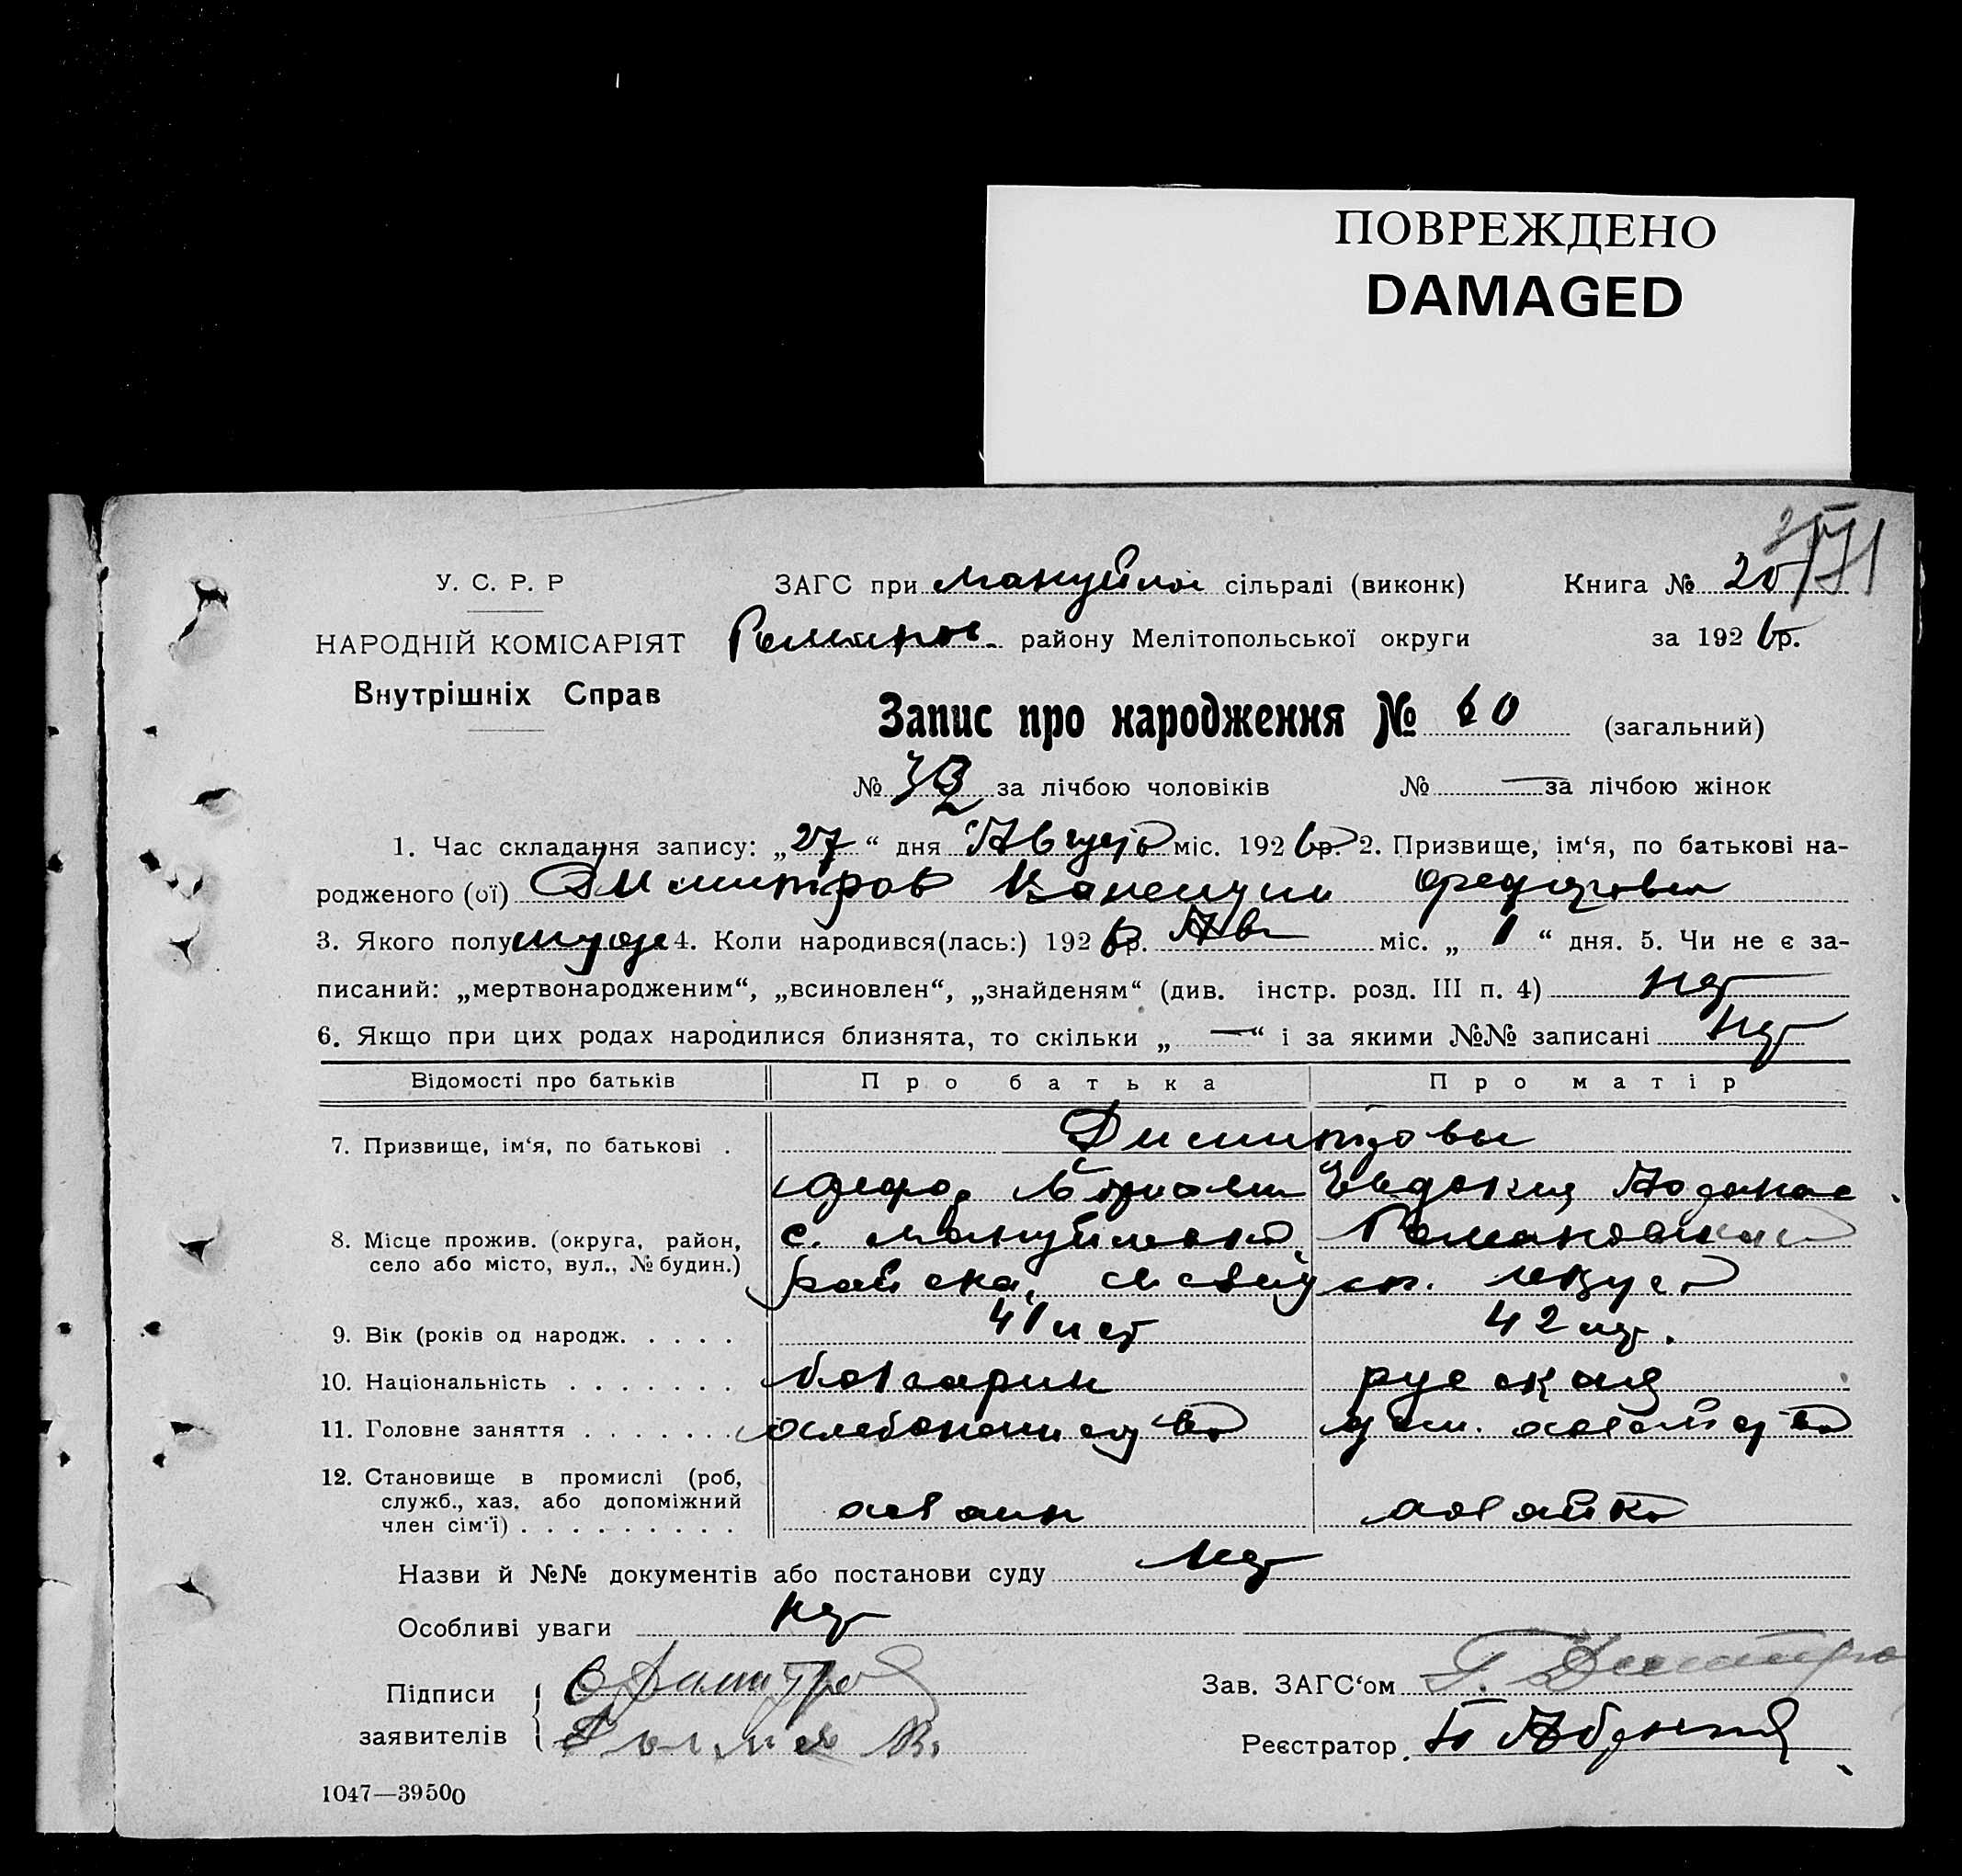 ПОВРЕЖДЕНО
DAMAGED
У. С. Р. Р ЗАГС при сільраді (виконк) Книга № 20
НАРОДНІЙ КОМІСАРІЯТ району Мелітопольської округи за 1926 р.
Внутрішніх Справ
Запис про народження № 60 (загальний)
№ за лічбою чоловіків № — за лічбою жінок
1. Час складання запису: „27“ дня Августа міс. 1926 р. 2. Призвище, ім‘я, по батькові на-
родженого (ої) Димитров
3. Якого полу муж 4. Коли народився(лась:) 1926 р. Авг міс. „1“ дня. 5. Чи не є за-
писаний: „мертвонародженим“, „всиновлен“, „знайденям“ (див. інстр. розд. III п. 4) нет
6. Якщо при цих родах народилися близнята, то скільки „—“ і за якими №№ записані нет
Відомості про батьків Про батька Про матір
7. Призвище, ім‘я, по батькові . Димитровы
Федор Евдокия
8. Місце прожив. (округа, район, с. Мануйловка, Романовский
село або місто, вул., № будин.) района, округа
9. Вік (років од народж. . . . . 41 лет 42 лет.
10. Національність . . . . . . . болгарин русская
11. Головне заняття . . . . . . . хлебопашество дом. хозяйство
12. Становище в промислі (роб,
служб., хаз. або допоміжний хозяин хозяйка
член сім‘ї) . . . . . . . . .
Назви й №№ документів або постанови суду нет
Особливі уваги нет
Підписи Ф Димитров Зав. ЗАГС‘ом Г. Димитров
заявителів Реєстратор
1047—39500